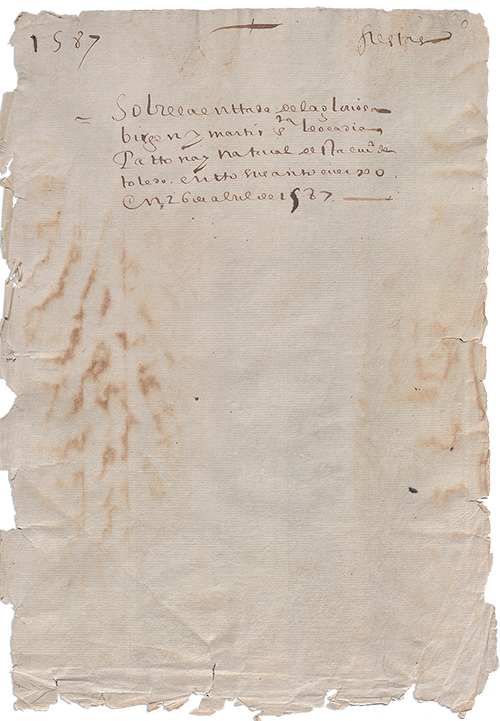 1587 fiestas
Sobre la enttada de la gloriosa
birgen y martir s.ta leocadia
Patrona y natural de sta ciu.d de
toledo. entto su santo cuerpo
en 26 de abril de 1587